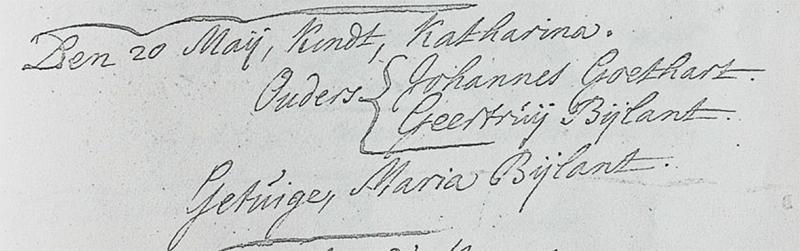 Den 20 Maij, Kindt, Katharina.
Ouders { Johannes Goethart.
Geertruij Bijlant.
Getuige, Maria Bijlant.